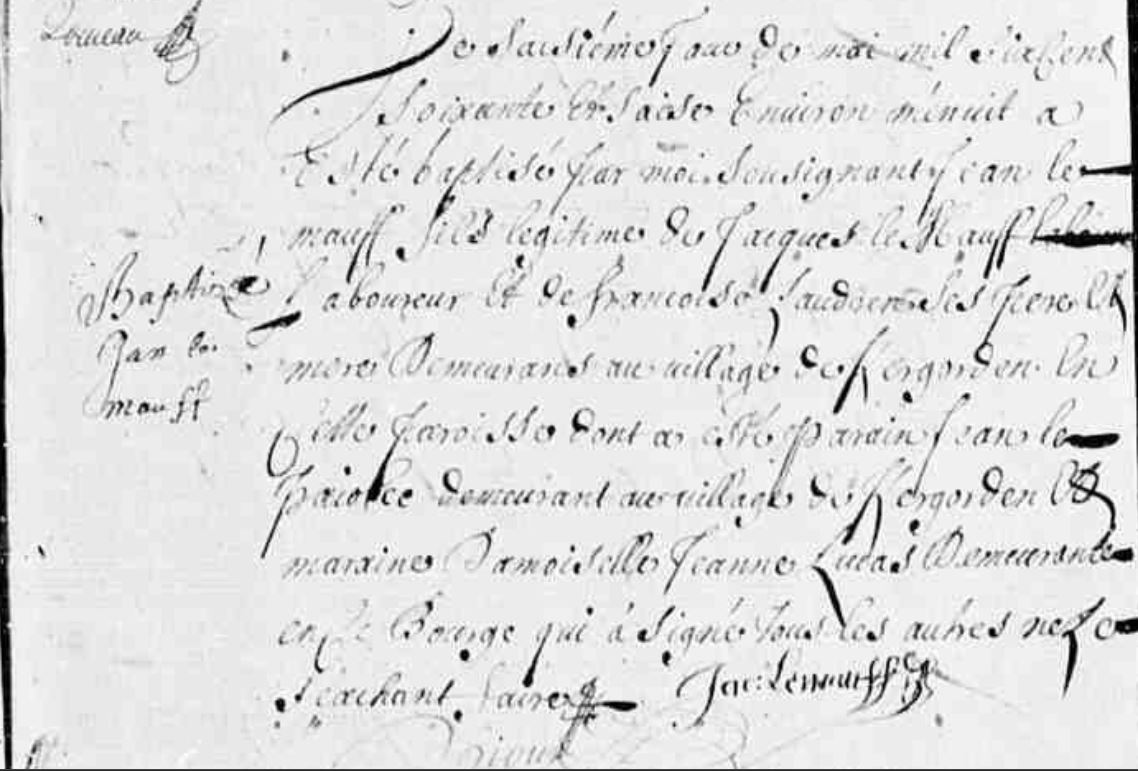 Le saisiéme Jour de mai mil six Cent
Soixante Et saise Environ minuit a
Esté baptisé par moi sousignant Jean le
mauff fils legitime de Jacques le Mauff
Baptizé
Jan le
mauff
laboureur Et de francoise ses pere Et
mere Demeurans au village de Kergorden En
Cette paroisse dont a esté parain Jean le
demeurant au village de Kergorden Et
maraine Damoiselle Jeanne Lucas Demeurante
en Bourge qui a signé tous les autres ne le
scachant faire Jac: Lemauff